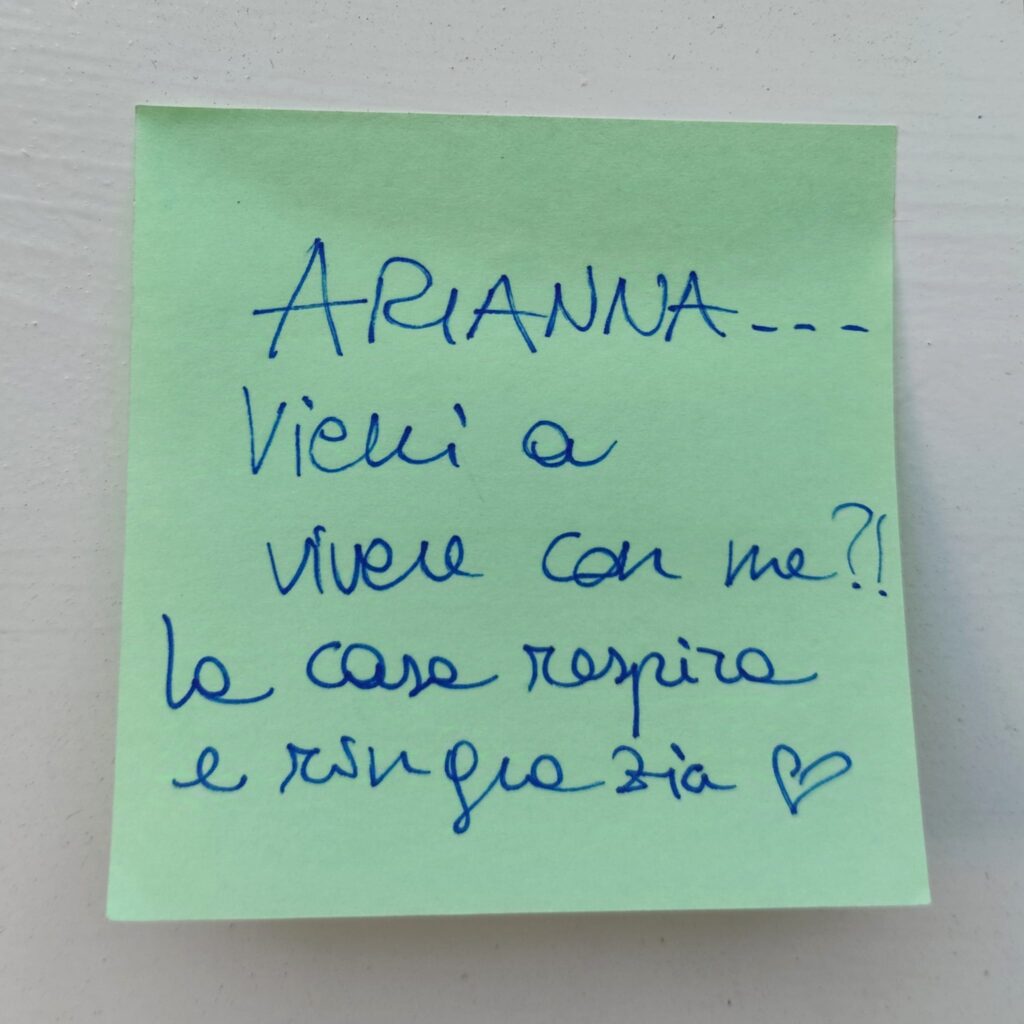 ARIANNA---
Vieni a
vivere con me?!
La casa respira
e ringrazia ♡